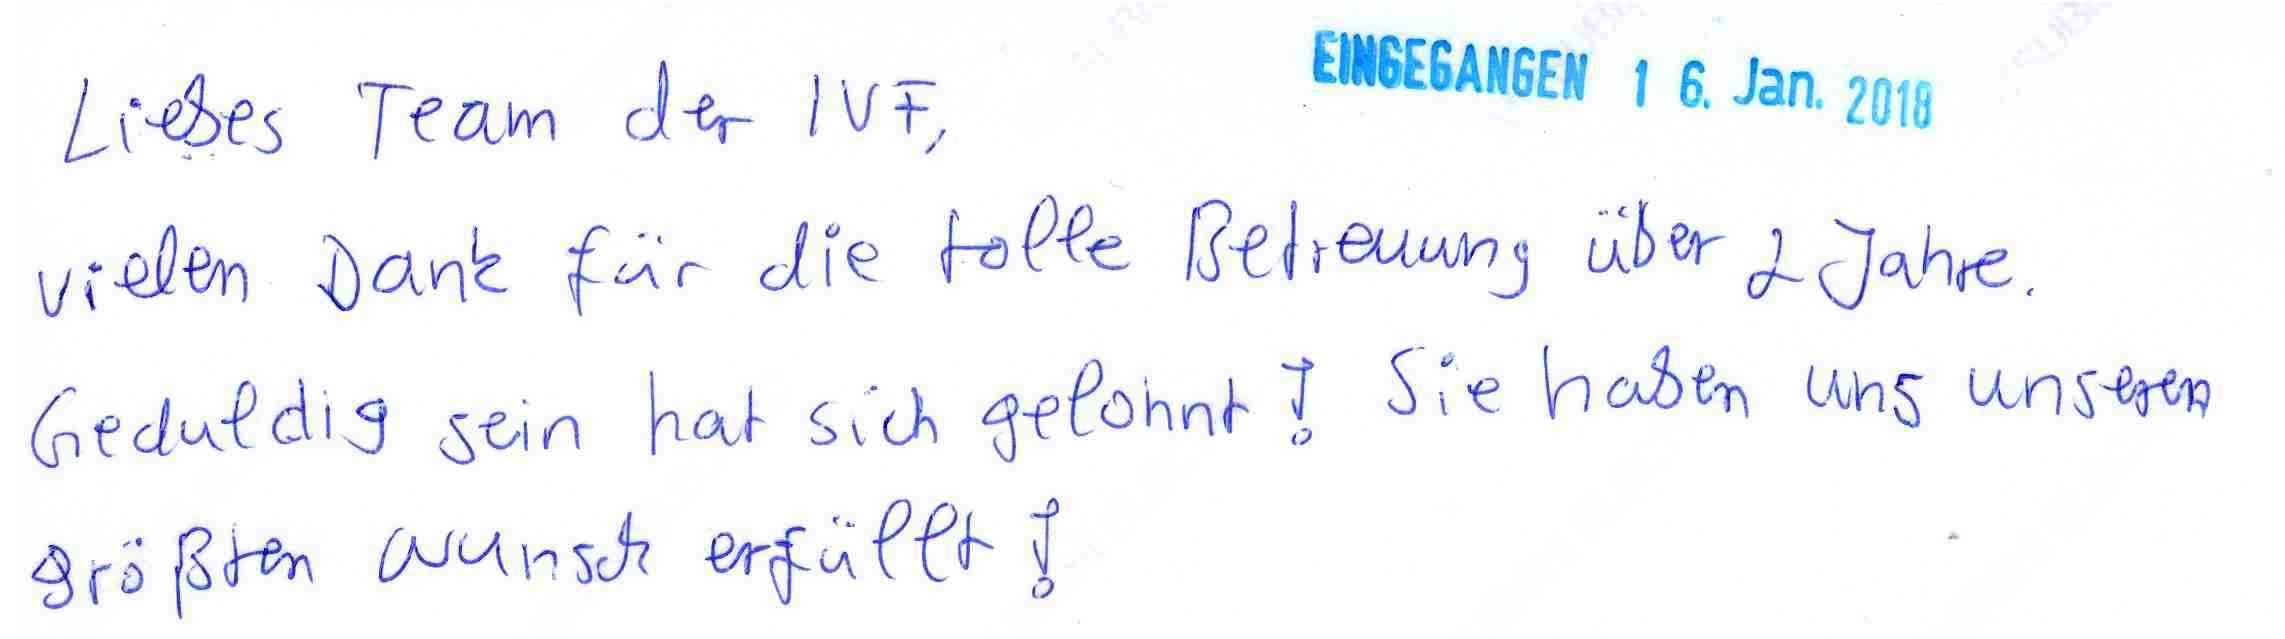 EINGEGANGEN 16. Jan. 2018
Liebes Team der IVF,
vielen Dank für die tolle Betreuung über 2 Jahre.
Geduldig sein hat sich gelohnt! Sie haben uns unseren
größten Wunsch erfüllt!